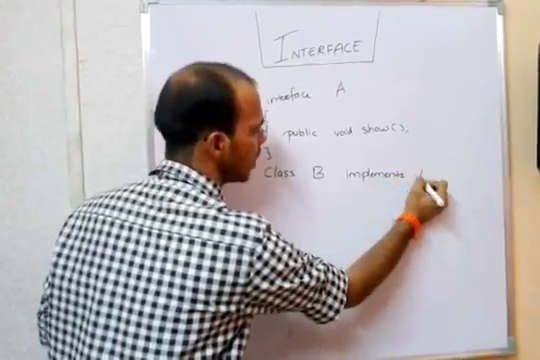 INTERFACE
interface A
{
public void show();
}
Class B implements